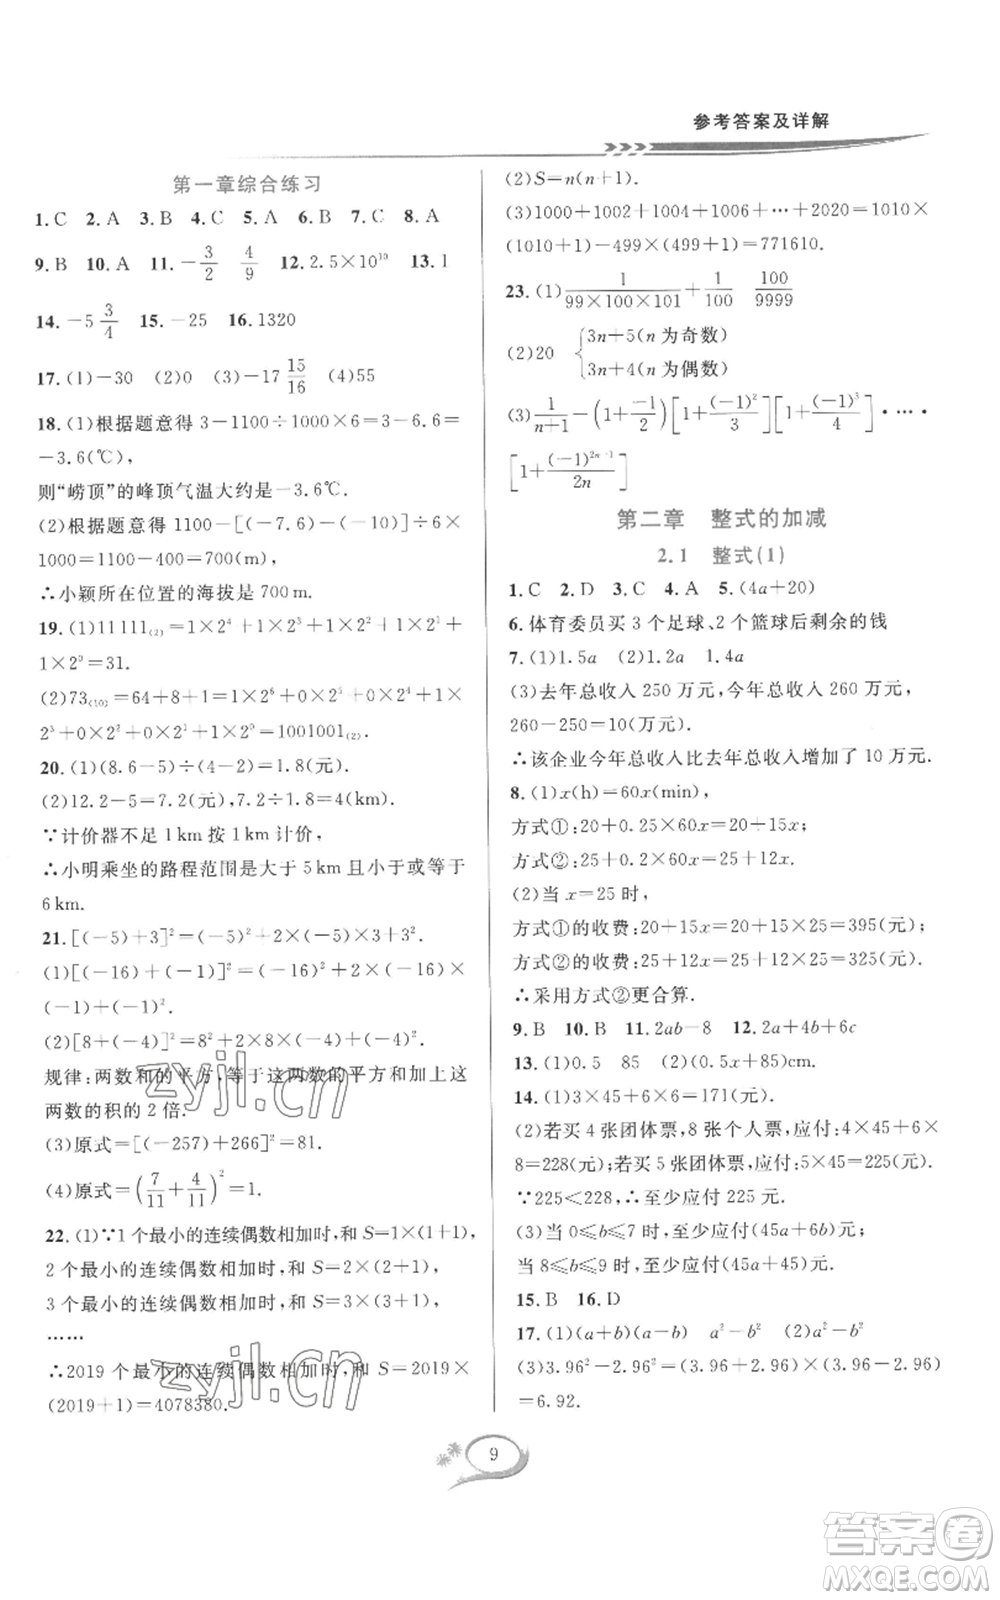 参考答案及详解
第一章综合练习
1.C 2.A 3.B 4.C 5.A 6.B 7.C 8.A
9.B 10.A 11.-3/2 4/9 12.2.5×10¹⁰ 13.1
14.-5 3/4 15.-25 16.1320
17.(1)-30 (2)0 (3)-17 15/16 (4)55
18.(1)根据题意得 3-1100÷1000×6=3-6.6=
-3.6(℃),
则“崂顶”的峰顶气温大约是-3.6℃.
(2)根据题意得 1100-[(-7.6)-(-4)]÷6×
1000=1100-400=700(m),
∴小颖所在位置的海拔是 700 m.
19.(1)11111₍₂₎=1×2⁴+1×2³+1×2²+1×2¹+
1×2⁰=31.
(2)73₍₁₀₎=64+8+1=1×2⁶+0×2⁵+0×2⁴+1×
2³+0×2²+0×2¹+1×2⁰=1001001₍₂₎.
20.(1)(8.6-5)÷(4-2)=1.8(元).
(2)12.2-5=7.2(元),7.2÷1.8=4(km).
∵计价器不足 1 km 按 1 km 计价,
∴小明乘坐的路程范围是大于 5 km 且小于或等于
6 km.
21.[(-5)+3]²=(-5)²+2×(-5)×3+3².
(1)[(-16)+(-1)]²=(-16)²+2×(-16)×
(-1)+(-1)².
(2)[8+(-4)]²=8²+2×8×(-4)+(-4)².
规律:两数和的平方,等于这两数的平方和加上这
两数的积的 2 倍.
(3)原式=[(-257)+266]²=81.
(4)原式=(7/11+4/11)²=1.
22.(1)∵1 个最小的连续偶数相加时,和 S=1×(1+1),
2 个最小的连续偶数相加时,和 S=2×(2+1),
3 个最小的连续偶数相加时,和 S=3×(3+1),
……
∴2019 个最小的连续偶数相加时,和 S=2019×
(2019+1)=4078380.
(2)S=n(n+1).
(3)1000+1002+1004+1006+…+2020=1010×
(1010+1)-499×(499+1)=771610.
23.(1)1/(99×100×101)+1/100 100/9999
(2)20 {3n+5(n 为奇数)
3n+4(n 为偶数)
(3)1/(n+1)-(1+(-1)/2)[1+(-1)²/3][1+(-1)³/4]·…·
[1+(-1)²ⁿ⁻¹/2n]
第二章 整式的加减
2.1 整式(1)
1.C 2.D 3.C 4.A 5.(4a+20)
6.体育委员买 3 个足球、2 个篮球后剩余的钱
7.(1)1.5a (2)1.2a 1.4a
(3)去年总收入 250 万元,今年总收入 260 万元,
260-250=10(万元).
∴该企业今年总收入比去年总收入增加了 10 万元.
8.(1)x(h)=60x(min),
方式①:20+0.25×60x=20+15x;
方式②:25+0.2×60x=25+12x.
(2)当 x=25 时,
方式①的收费:20+15x=20+15×25=395(元),
方式②的收费:25+12x=25+12×25=325(元).
∴采用方式②更合算.
9.B 10.B 11.2ab-8 12.2a+4b+6c
13.(1)0.5 85 (2)(0.5x+85)cm.
14.(1)3×45+6×6=171(元).
(2)若买 4 张团体票,8 张个人票,应付:4×45+6×
8=228(元);若买 5 张团体票,应付:5×45=225(元).
∵225<228,∴至少应付 225 元.
(3)当 0≤b≤7 时,至少应付(45a+6b)元;
当 8≤b≤9 时,至少应付 45(a+1)元.
15.B 16.D
17.(1)(a+b)(a-b) a²-b² (2)a²-b²
(3)3.96²-2.96²=(3.96+2.96)×(3.96-2.96)
=6.92.
9
zyjl.cn
zyjl.cn
答案圈
MXQE.COM